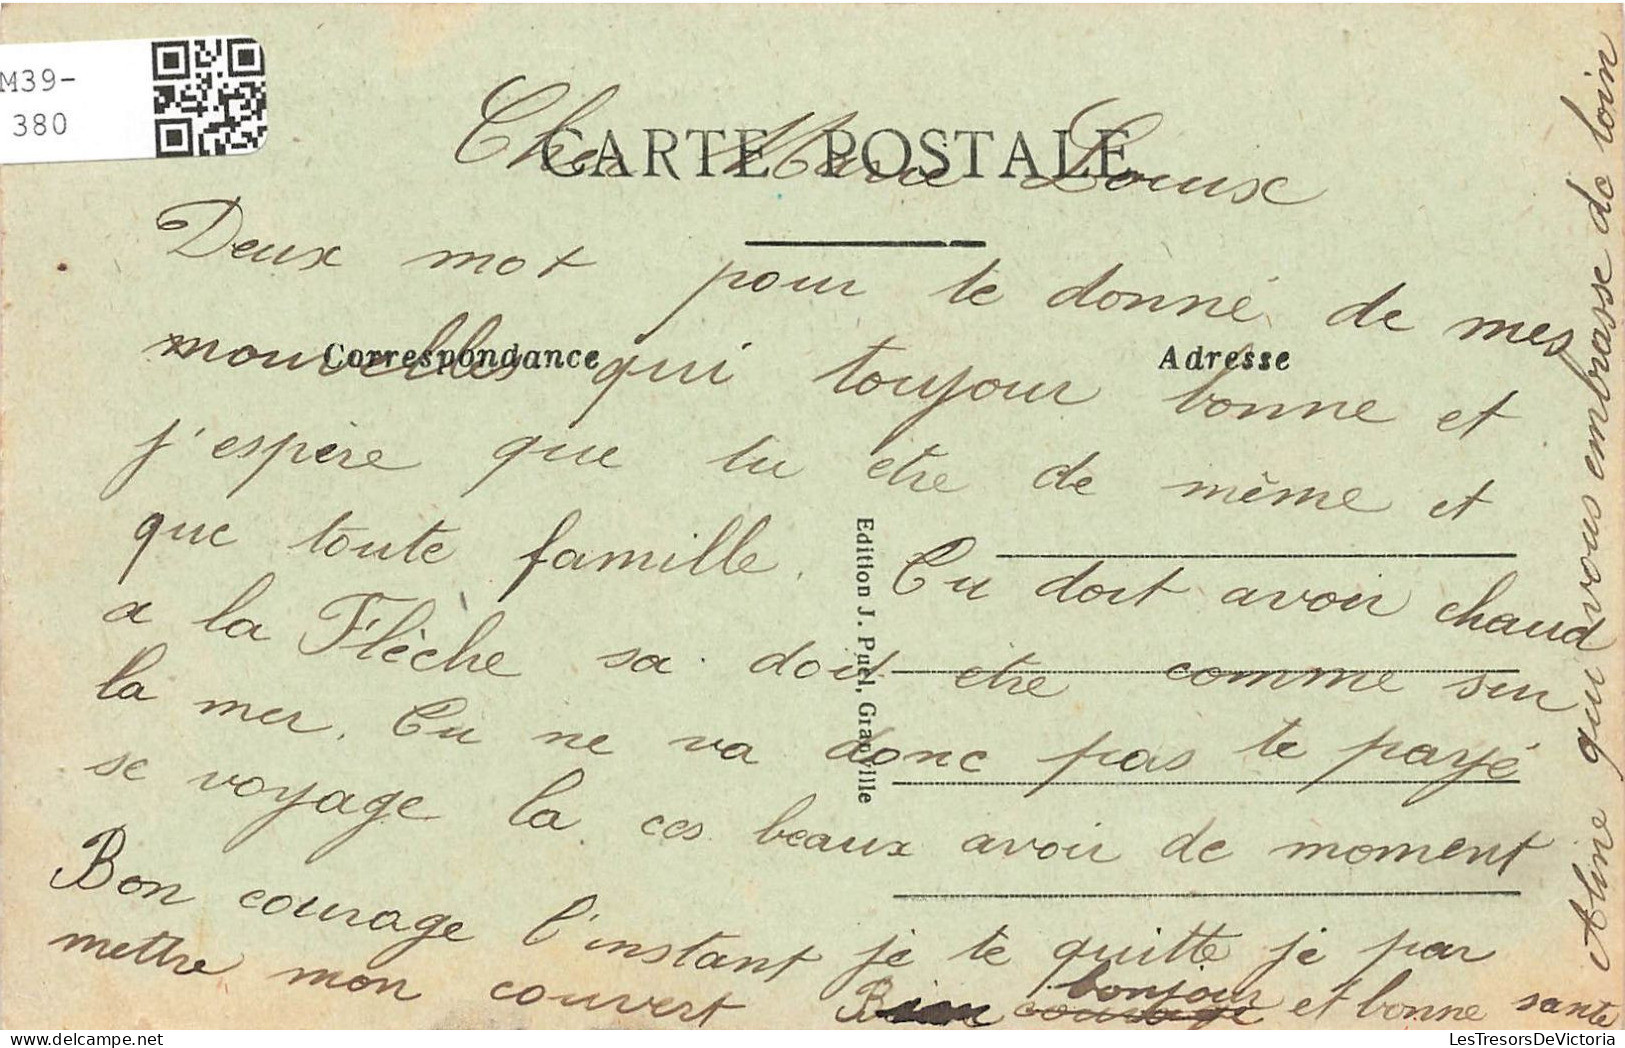 M39-
380
CARTE POSTALE
Cher Marie Louise
Deux mot pour te donné de mes
nouvelles qui toujour bonne et
Correspondance
Adresse
j'espère que tu etre de même et
que toute famille. Tu doit avoir chaud
a la Flèche sa doit etre comme sur
la mer. Tu ne va donc pas te payé
se voyage la ces beaux avoir de moment
Bon courage l'instant je te quitte je par
mettre mon couvert bonjour et bonne sante
Aline qui vous embrasse de loin
Edition J. Puel, Granville
LesTresorsDeVictoria